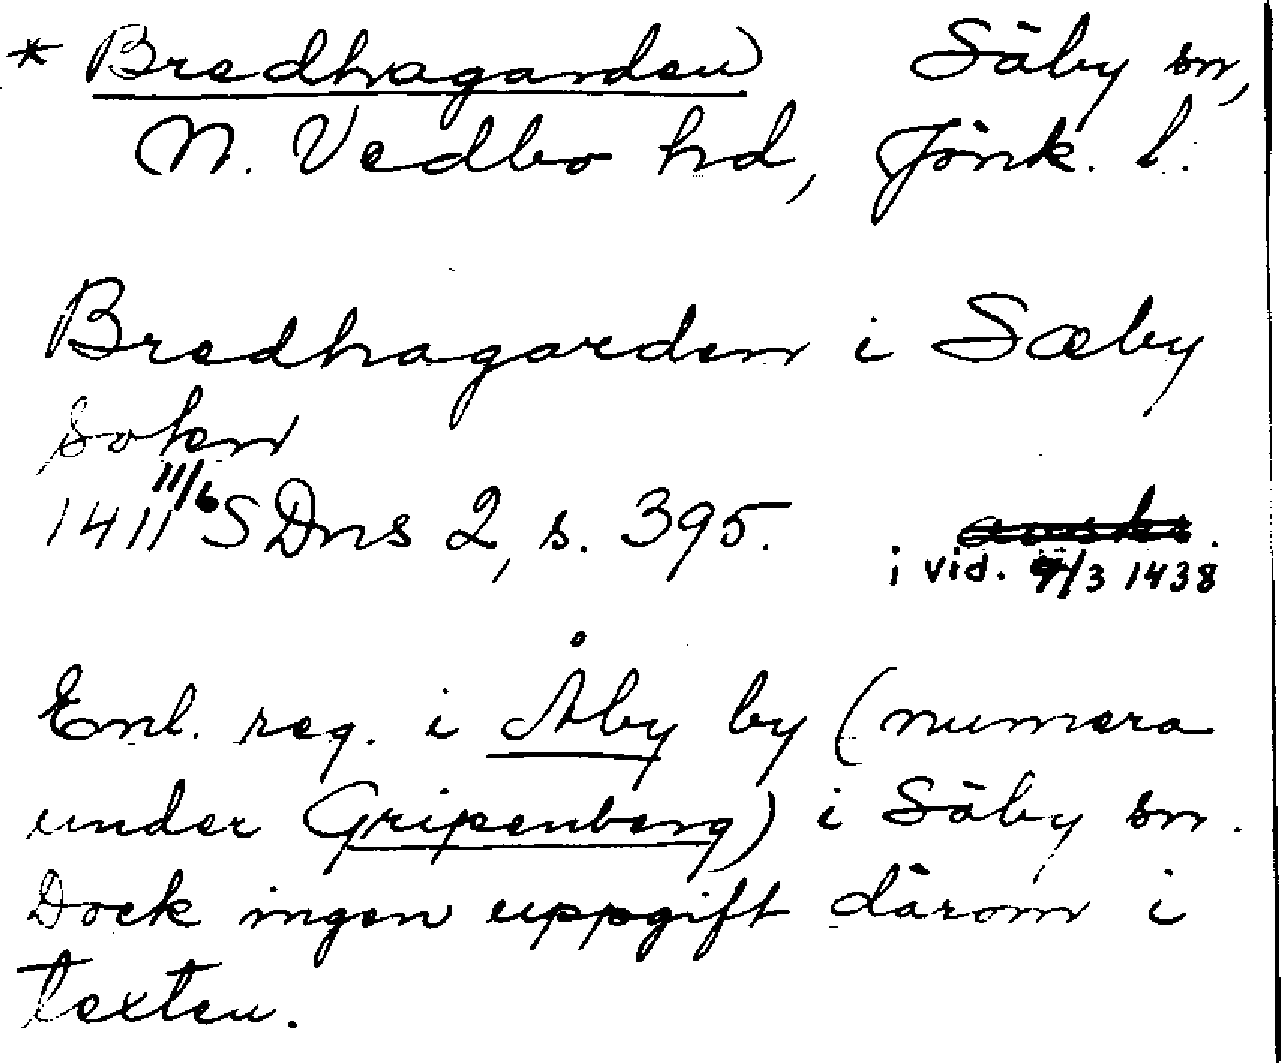 * Bredhagarden Säby sn,
N. Vedbo hd, Jönk. l.
Bredhagarden i Sæby
sokn
1411 11/6 SDns 2, s. 395.
i vid. /3 1438
Enl. reg. i Åby by (numera
under Gripenberg) i Säby sn.
Dock ingen uppgift därom i
texten.